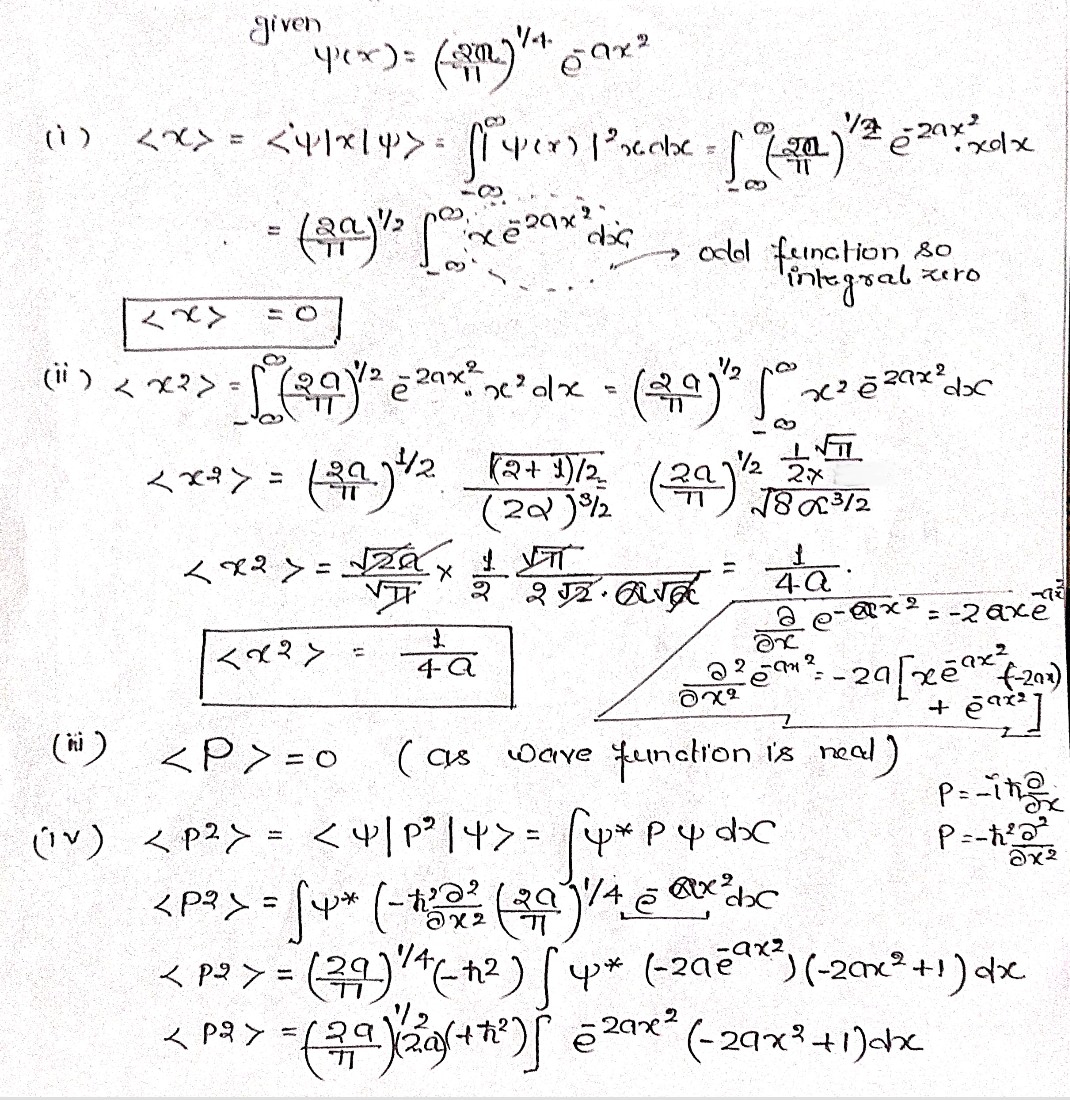 given
ψ(x) = (2a/π)^1/4 e^-ax²
(i) <x> = <ψ|x|ψ> = ∫_-∞^∞ |ψ(x)|² x dx = ∫_-∞^∞ (2a/π)^1/2 e^-2ax² . x dx
= (2a/π)^1/2 ∫_-∞^∞ x e^-2ax² dx → odd function so
integral zero
<x> = 0
(ii) <x2> = ∫_-∞^∞ (2a/π)^1/2 e^-2ax² . x² dx = (2a/π)^1/2 ∫_-∞^∞ x² e^-2ax² dx
<x2> = (2a/π)^1/2 . Γ(2+1)/2 / (2α)^3/2 (2a/π)^1/2 1/2 × √π / √8 α^3/2
<x2> = √2a/√π × 1/2 √π / 2√2 . a√a = 1/4a .
∂/∂x e^-ax² = -2axe^-ax²
<x2> = 1/4a
∂²/∂x² e^-ax² = -2a [xe^-ax² (-2ax)
+ e^-ax²]
(iii) <P> = 0 (as wave function is real)
P = -iħ ∂/∂x
(iv) <p2> = <ψ|p²|ψ> = ∫ψ* P ψ dx
P = -ħ² ∂²/∂x²
<p2> = ∫ψ* (-ħ² ∂²/∂x² (2a/π)^1/4 e^-ax² dx
<p2> = (2a/π)^1/4 (-ħ2) ∫ ψ* (-2ae^-ax²) (-2ax²+1) dx
<p2> = (2a/π)^1/2 (2a)(+ħ²) ∫ e^-2ax² (-2ax²+1) dx